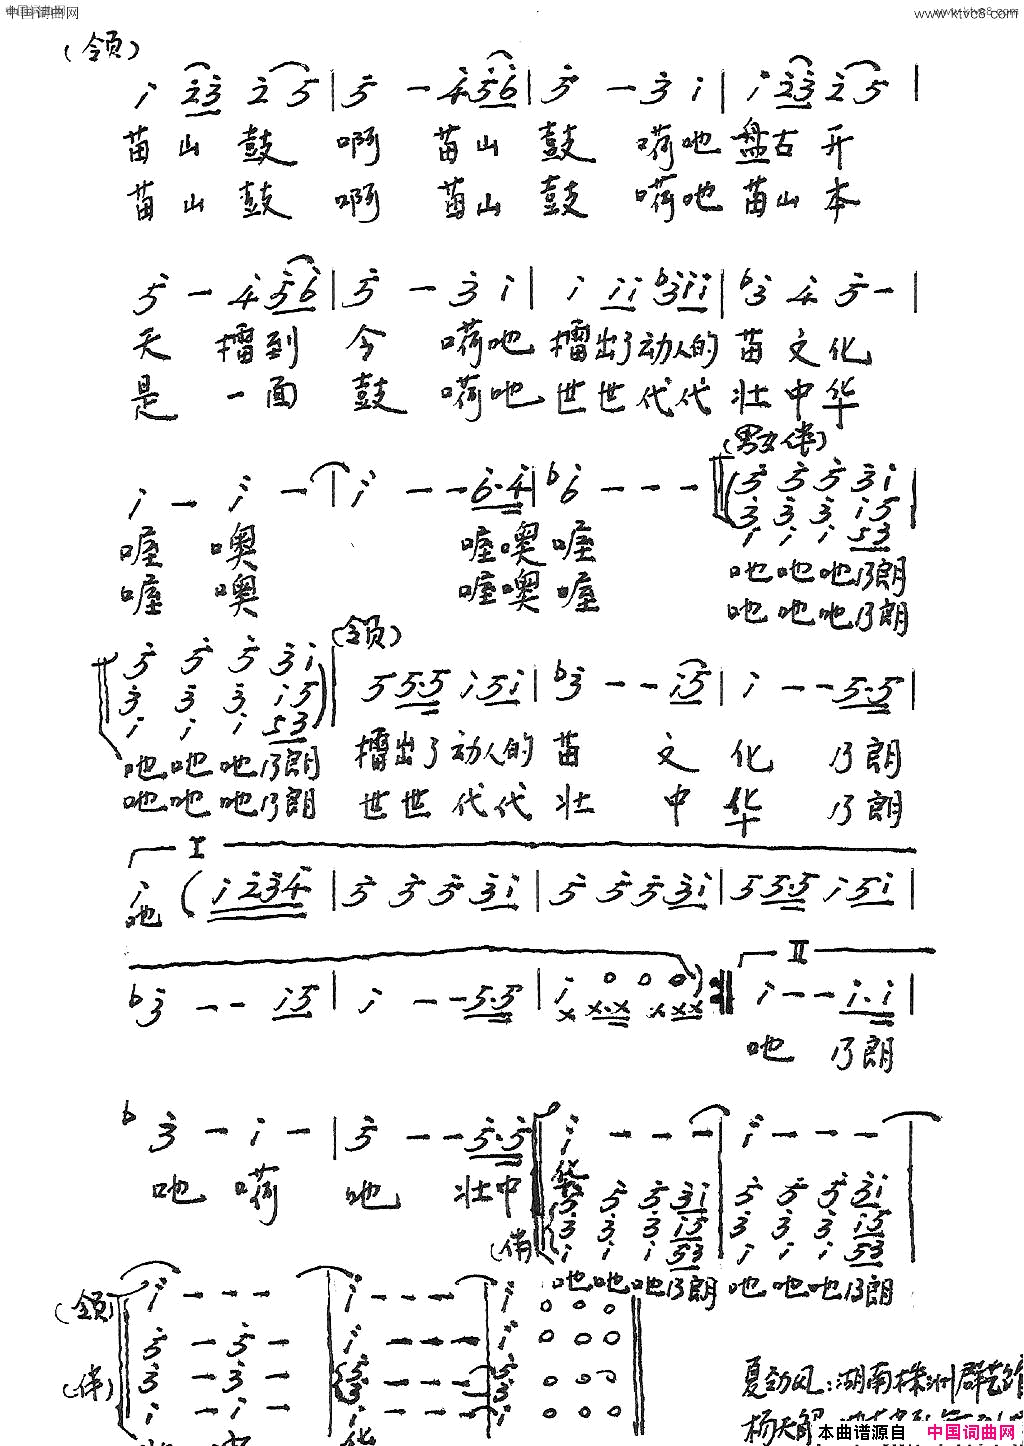 中国词曲网 www.ktvc8.com
(领)
苗山鼓 啊 苗山鼓 嗬吔盘古开
苗山鼓 啊 苗山鼓 嗬吔苗山本
天 擂到 今 嗬吔 擂出了动人的 苗文化
是 一面 鼓 嗬吔 世世代代 壮中华
(男女伴)
喔 噢 喔噢喔
喔 噢 喔噢喔
吔吔吔乃朗
吔吔吔乃朗
(领)
吔吔吔乃朗 擂出了动人的 苗 文化 乃朗
吔吔吔乃朗 世世代代 壮 中华 乃朗
I
吔
II
吔 乃朗
吔 嗬 吔 壮中 华
(伴)
吔吔吔乃朗 吔吔吔乃朗
(领)
(伴)
夏劲风:湖南株洲群艺馆
本曲谱源自 中国词曲网